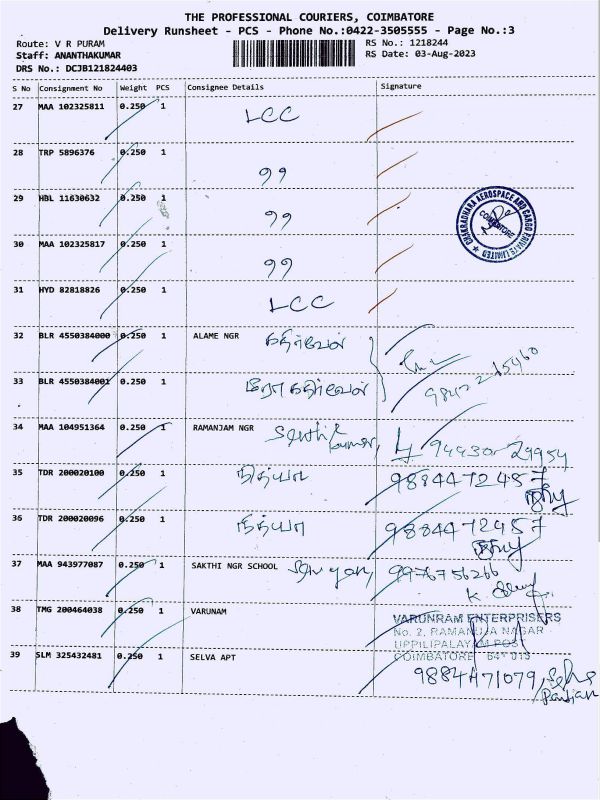 THE PROFESSIONAL COURIERS, COIMBATORE
Delivery Runsheet - PCS - Phone No.:0422-3505555 - Page No.:3
Route: V R PURAM
RS No.: 1218244
Staff: ANANTHAKUMAR
RS Date: 03-Aug-2023
DRS No.: DCJB121824403
S No Consignment No Weight PCS Consignee Details Signature
27 MAA 102325811 0.250 1 LCC
28 TRP 5896376 0.250 1 99
29 HBL 11630632 0.250 1 99
CHAKRADHARA AEROSPACE AND CARGO PRIVATE LIMITED
COIMBATORE
30 MAA 102325817 0.250 1 99
31 HYD 82818826 0.250 1 LCC
32 BLR 4550384000 0.250 1 ALAME NGR கதிர்வேல்
33 BLR 4550384001 0.250 1
34 MAA 104951364 0.250 1 RAMANJAM NGR Senthil
kumar, 94430-29954
35 TDR 200020100 0.250 1 நித்யா 9884472457
36 TDR 200020096 0.250 1 நித்யா 9884472457
37 MAA 943977087 0.250 1 SAKTHI NGR SCHOOL 9976756266
38 TMG 200464038 0.250 1 VARUNAM
VARUNRAM ENTERPRISERS
No. 2, RAMANUJA NAGAR
UPPILIPALAYAM POST
COIMBATORE 641 015
39 SLM 325432481 0.250 1 SELVA APT
9884471079, Selva
Pandian